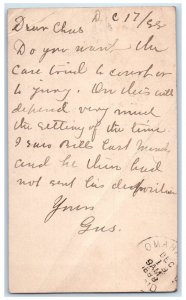 D C 17/88
Dear Chas
Do you want the
case tried to court or
to jury. On this will
depend very much
the setting of the time.
I saw Bills last
and he then had
not sent his
Yours
Gus.
OMAHA
DEC